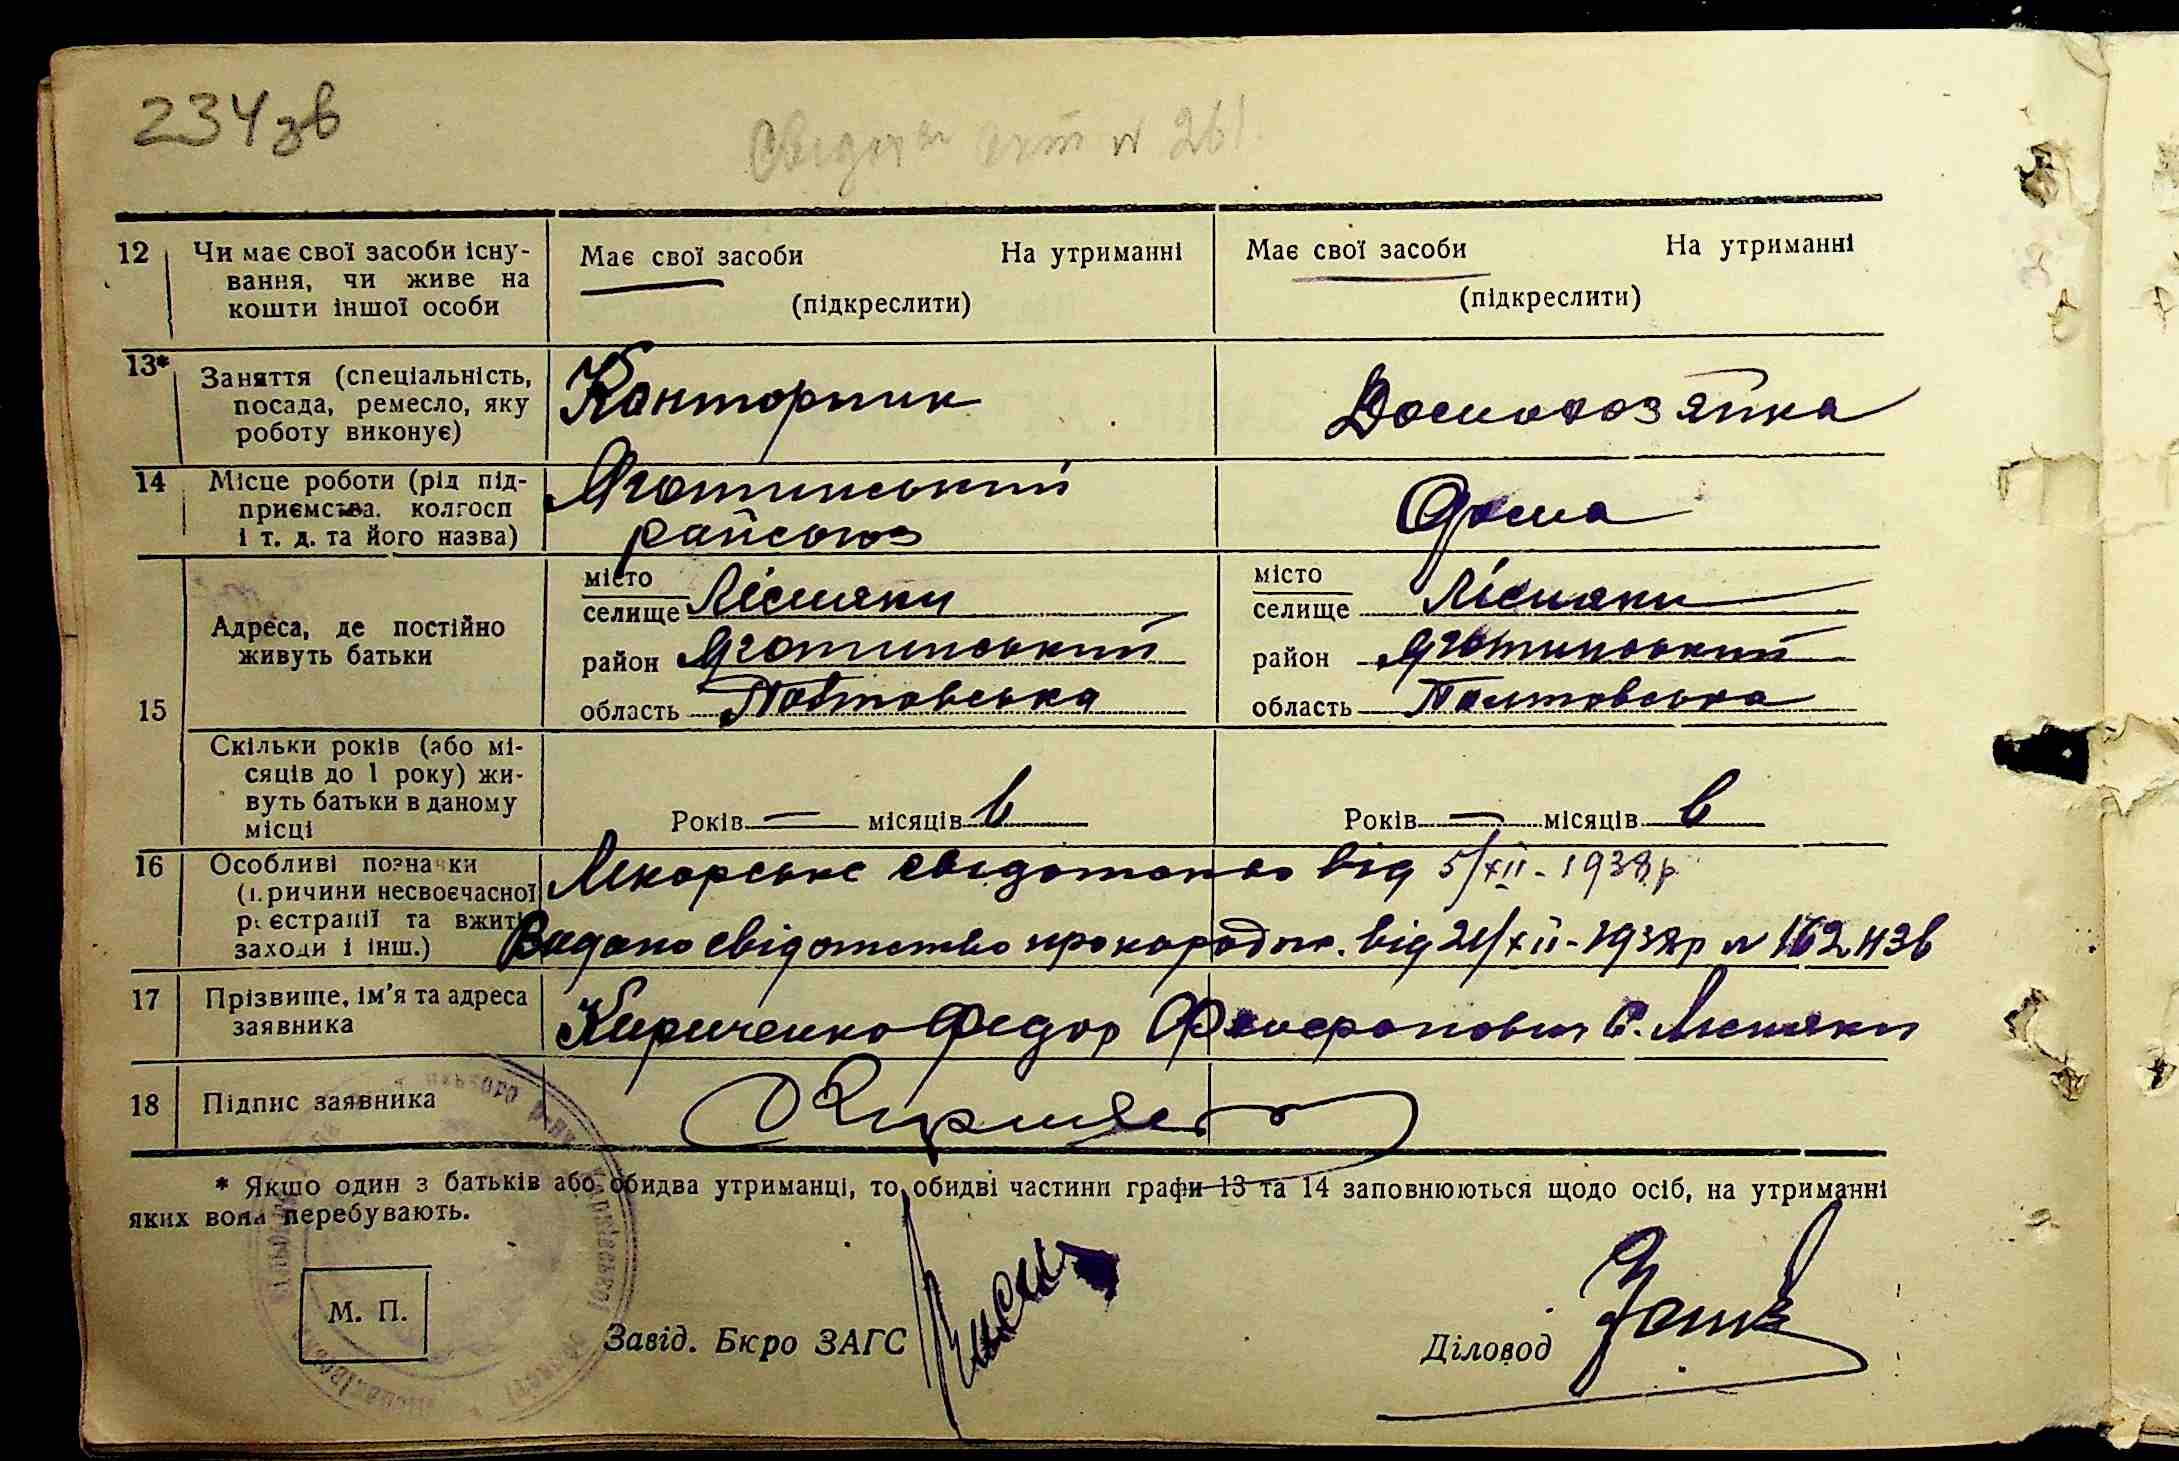 234зв
акт № 261
12 Чи має свої засоби існу-
вання, чи живе на
кошти іншої особи
Має свої засоби На утриманні
(підкреслити)
Має свої засоби На утриманні
(підкреслити)
13* Заняття (спеціальність,
посада, ремесло, яку
роботу виконує)
Канторник
Домохозяйка
14 Місце роботи (рід під-
приємства. колгосп
і т. д. та його назва)
Яготинський
райсоюз
Дома
15 Адреса, де постійно
живуть батьки
місто
селище Лісняки
район Яготинський
область Полтовська
місто
селище Лісняки
район Яготинський
область Полтовська
Скільки років (або мі-
сяців до 1 року) жи-
вуть батьки в даному
місці
Років — місяців 6
Років — місяців 6
16 Особливі позначки
(причини несвоєчасної
реєстрації та вжиті
заходи і інш.)
Лікарське свідотство від 5/XII-1938 р
Видано свідотство про народж. від 21/XII-1938р № 162436
17 Прізвище, ім'я та адреса
заявника
Кириченко Федор С. Лісняки
18 Підпис заявника
* Якщо один з батьків або обидва утриманці, то обидві частини графи 13 та 14 заповнюються щодо осіб, на утриманні
яких вони перебувають.
М. П.
Завід. Бюро ЗАГС
Діловод